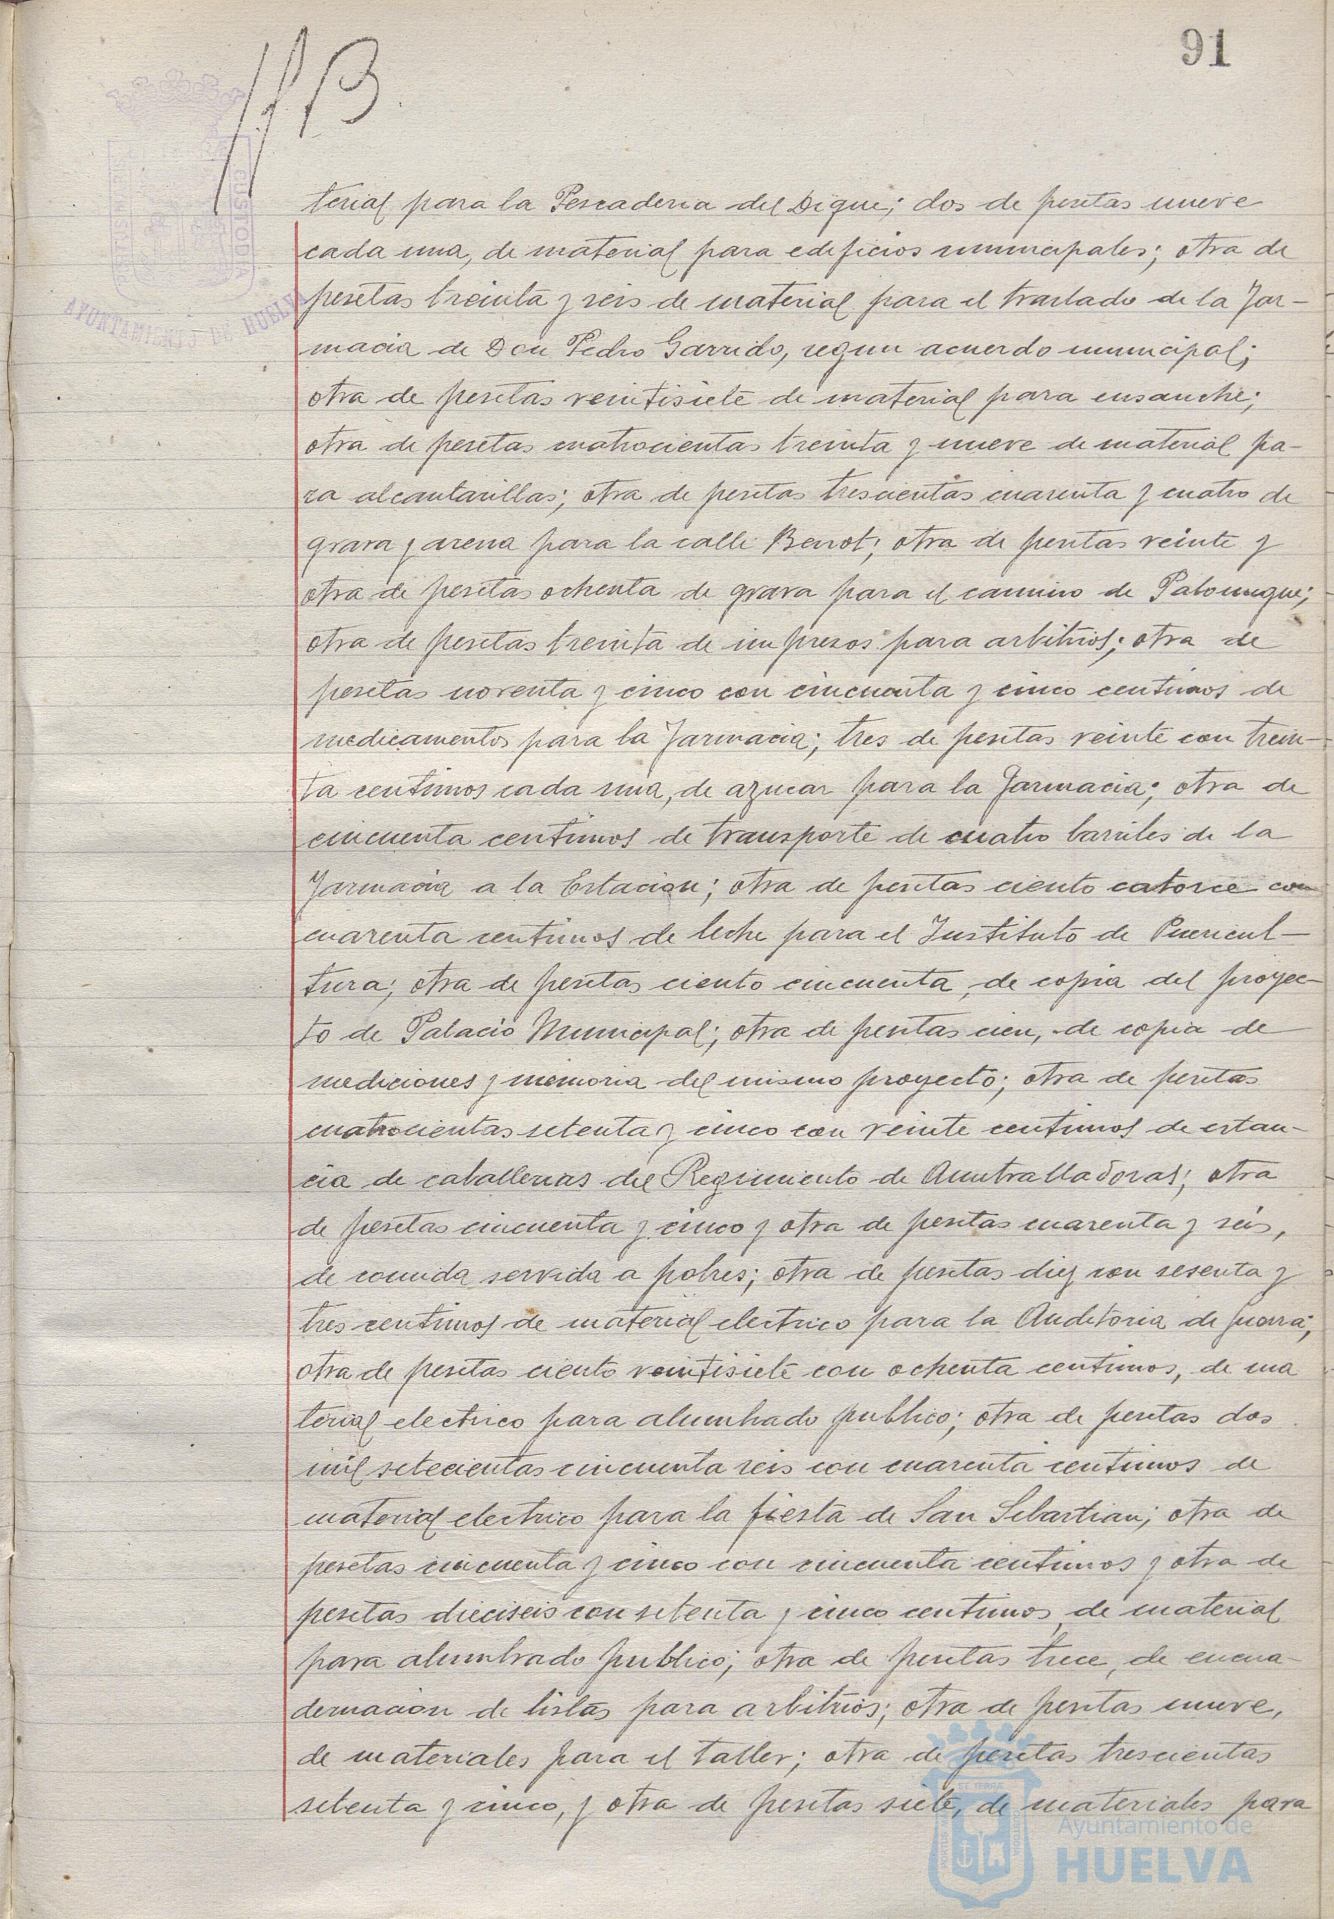 91
terial para la Pescaderia del Dique; dos de pesetas nueve
cada una, de material para edificios municipales; otra de
pesetas treinta y seis de material para el traslado de la Far-
macia de Don Pedro Garrido, segun acuerdo municipal;
otra de pesetas veintisiete de material para ensanche;
otra de pesetas cuatrocientas treinta y nueve de material pa-
ra alcantarillas; otra de pesetas trescientas cuarenta y cuatro de
grava y arena para la calle Benot; otra de pesetas veinte y
otra de pesetas ochenta de grava para el camino de Palomeque;
otra de pesetas treinta de impresos para arbitrios; otra de
pesetas noventa y cinco con cincuenta y cinco centimos de
medicamentos para la Farmacia; tres de pesetas veinte con trein-
ta centimos cada una, de azucar para la Farmacia; otra de
cincuenta centimos de transporte de cuatro barriles de la
Farmacia a la Estacion; otra de pesetas ciento catorce con
cuarenta centimos de leche para el Instituto de Puericul-
tura; otra de pesetas ciento cincuenta, de copia del proyec-
to de Palacio Municipal; otra de pesetas cien, de copia de
mediciones y memoria del mismo proyecto; otra de pesetas
cuatrocientas setenta y cinco con veinte centimos de estan-
cia de caballerias del Regimiento de Ametralladoras; otra
de pesetas cincuenta y cinco y otra de pesetas cuarenta y seis,
de comida servida a pobres; otra de pesetas diez con sesenta y
tres centimos de material electrico para la Auditoria de guerra;
otra de pesetas ciento veintisiete con ochenta centimos, de ma
terial electrico para alumbrado publico; otra de pesetas dos
mil setecientas cincuenta seis con cuarenta centimos de
material electrico para la fiesta de San Sebastian; otra de
pesetas cincuenta y cinco con cincuenta centimos y otra de
pesetas dieciseis con setenta y cinco centimos, de material
para alumbrado publico; otra de pesetas trece, de encua-
dernacion de listas para arbitrios; otra de pesetas nueve,
de materiales para el taller; otra de pesetas trescientas
setenta y cinco, y otra de pesetas siete, de materiales para
CUSTODIA
AYUNTAMIENTO DE HUELVA
Ayuntamiento de
HUELVA